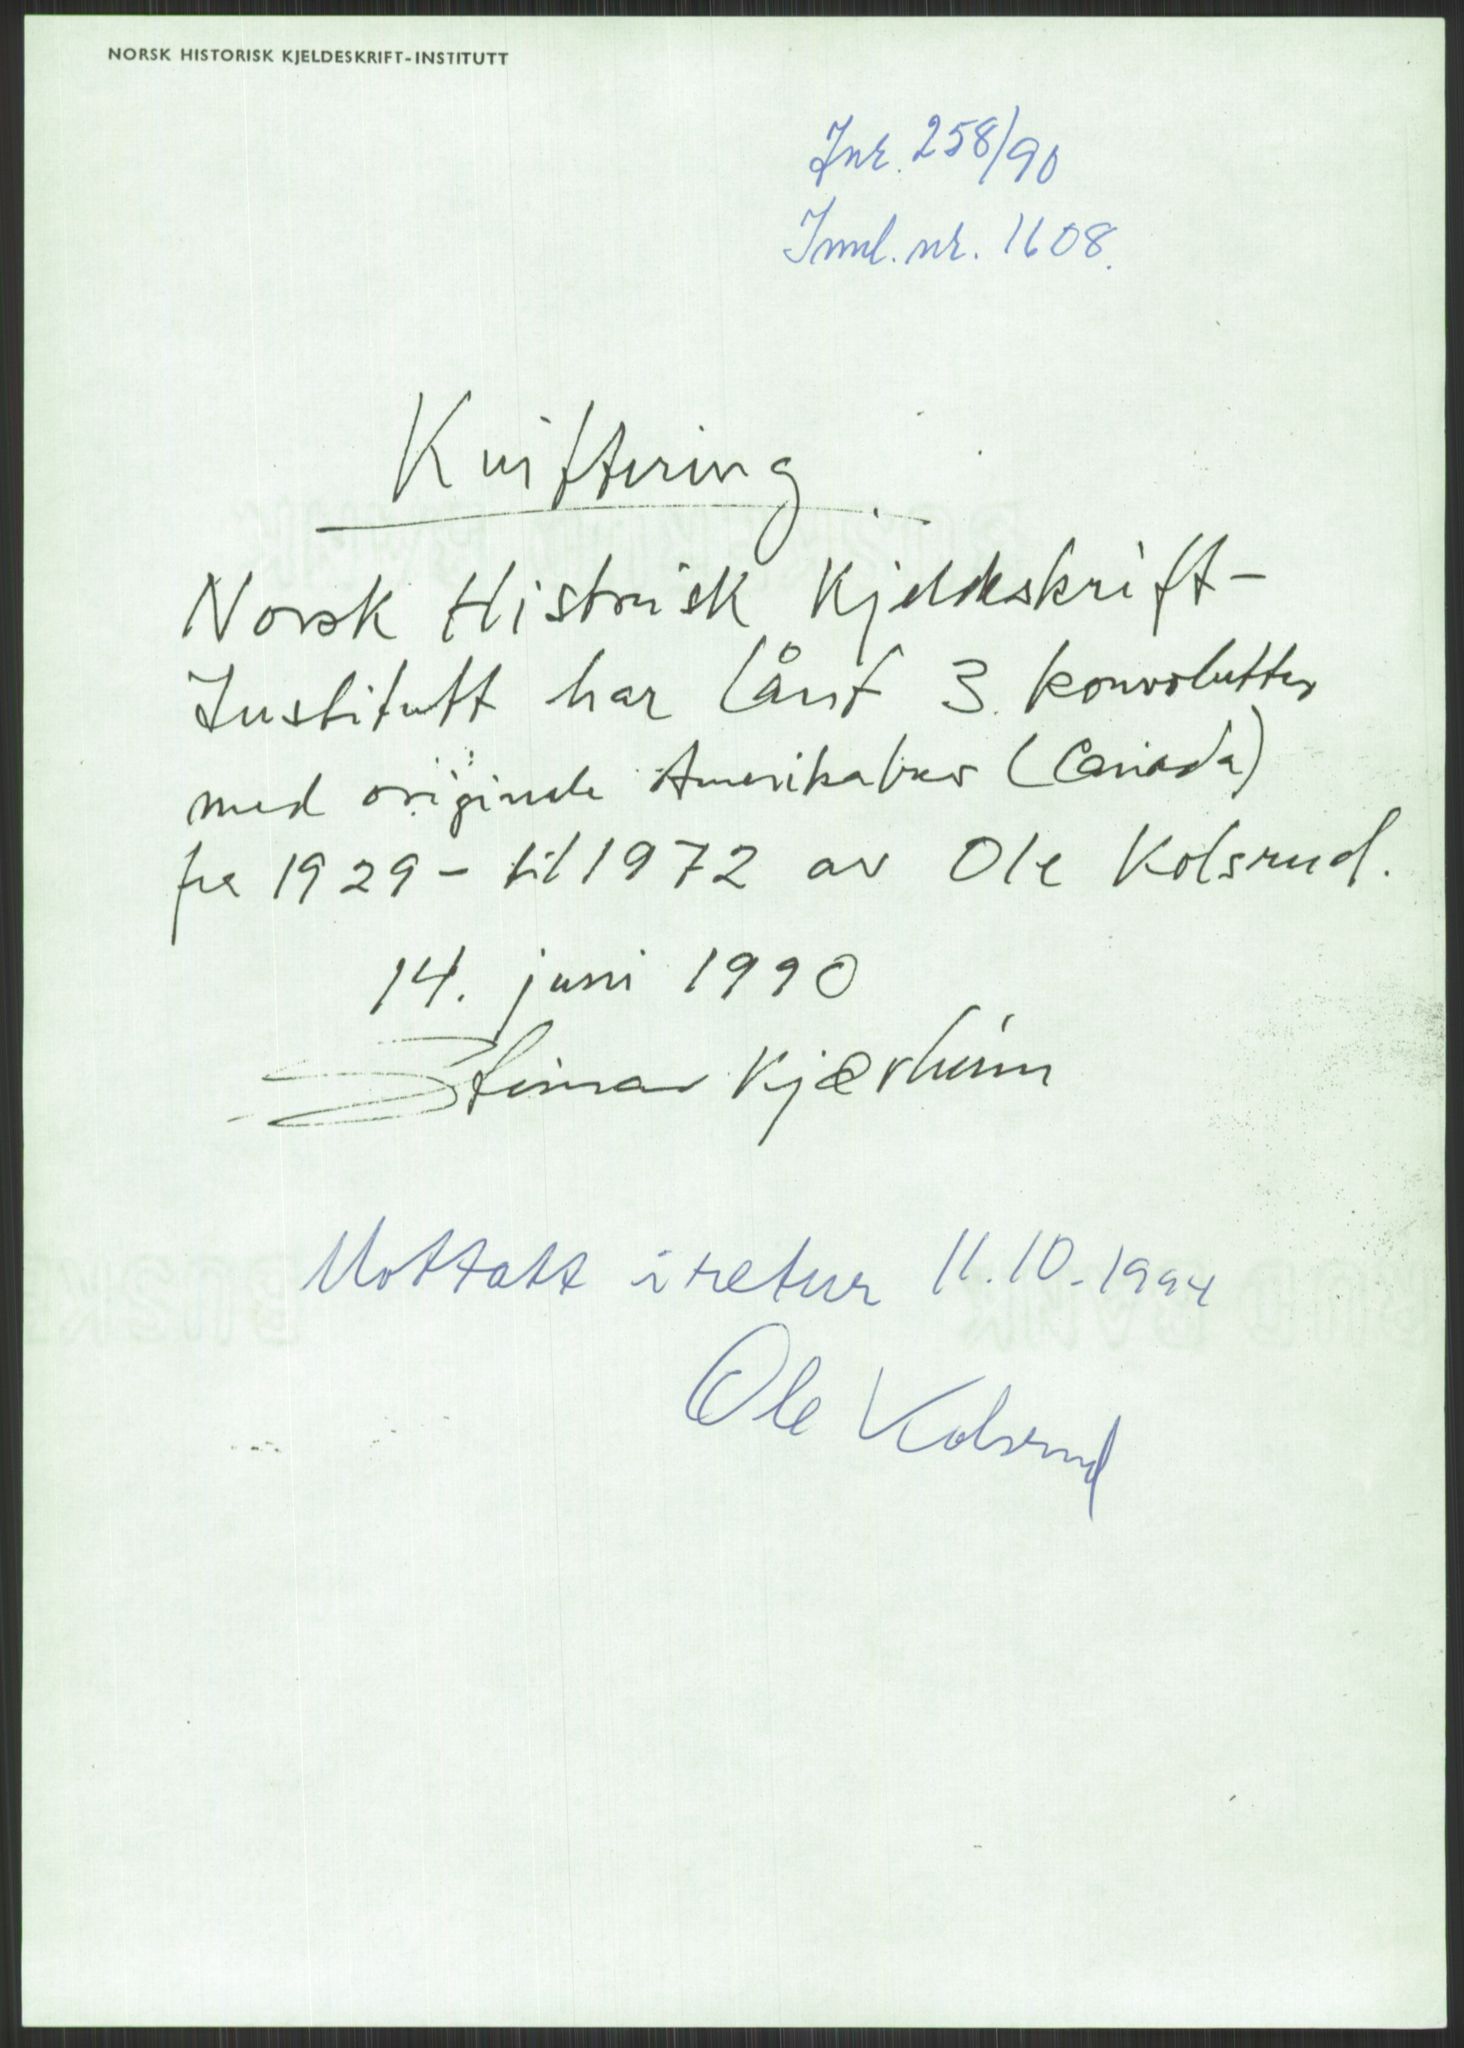 NORSK HISTORISK KJELDESKRIFT-INSTITUTT
Jnr. 258/90
Innl. nr. 1608.
Kvittering
Norsk Historisk Kjeldeskrift-
Institutt har lånt 3 konvolutter
med originale Amerikabrev (Canada)
fra 1929 - til 1972 av Ole Kolsrud.
14. juni 1990
Steinar Kjærheim
Mottatt i retur 11.10.1994
Ole Kolsrud